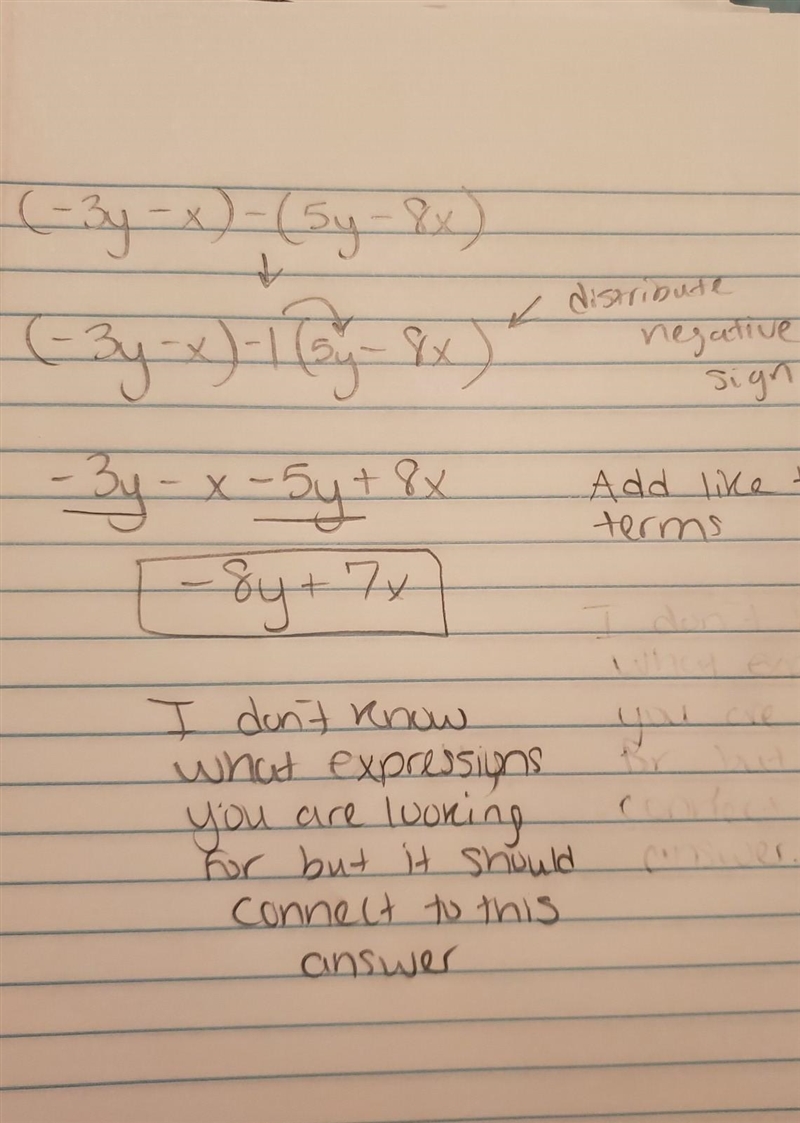 (-3y - x) - (5y - 8x)
↓
(-3y - x) -1(5y - 8x) ↙ distribute
negative
sign
-3y - x - 5y + 8x Add like
terms
-8y + 7x
I don't know
what expressions
you are looking
for but it should
connect to this
answer
I don't
what
you are
for but
answer.